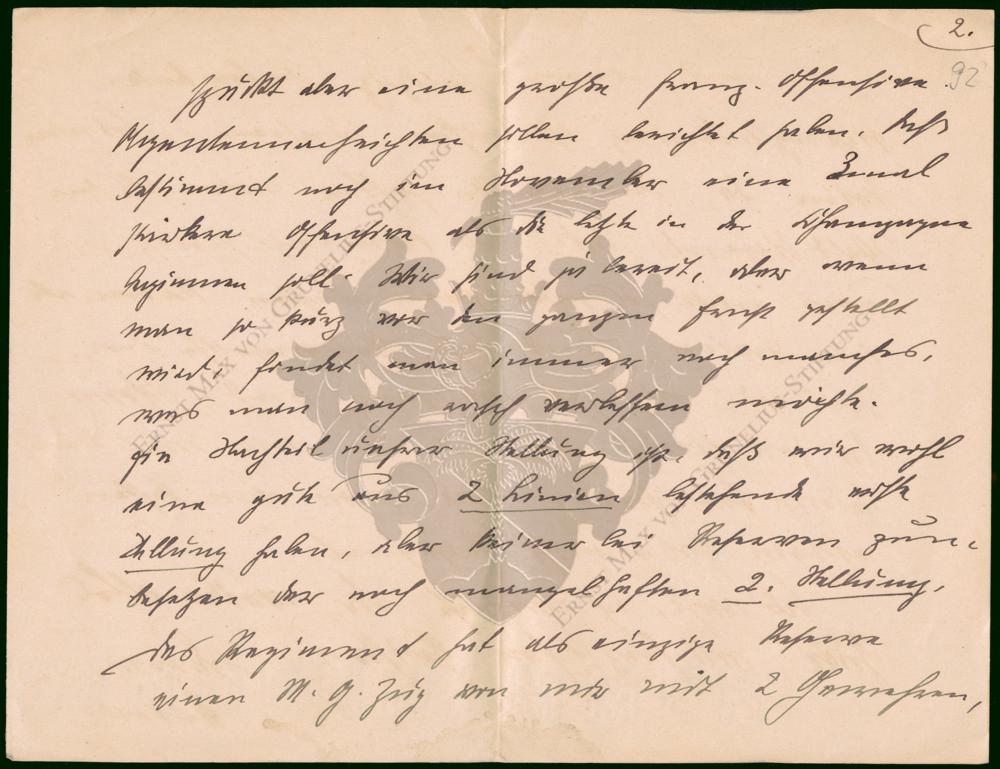 2.
92
spukt aber eine große franz. Offensive.
Agentennachrichten sollen berichtet haben, daß
bestimmt noch im November eine 3mal
stärkere Offensive als die letzte in der Champagne
beginnen soll. Wir sind ja bereit, aber wenn
man so kurz vor den ganzen Ernst gestellt
wird, findet man immer noch manches,
was man noch rasch verbessern möchte.
Ein Nachteil unsrer Stellung ist, daß wir wohl
eine gute aus 2 Linien bestehende erste
Stellung haben, aber keinerlei Reserven zum
besetzen der noch mangelhaften 2. Stellung.
Das Regiment hat als einzige Reserve
einen M. G. Zug von mir mit 2 Gewehren,
ERNST MAX VON GRUNELIUS-STIFTUNG
ERNST MAX VON GRUNELIUS-STIFTUNG